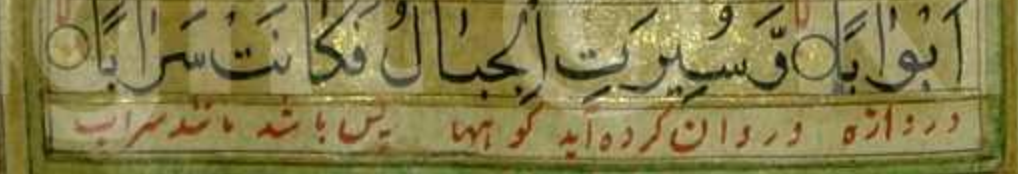 اَبْوَابًا ۝ وَّ سُیِّرَتِ الْجِبَالُ فَكَانَتْ سَرَابًا ۝
دروازه و روان کرده آید کوهها پس باشد مانند سراب